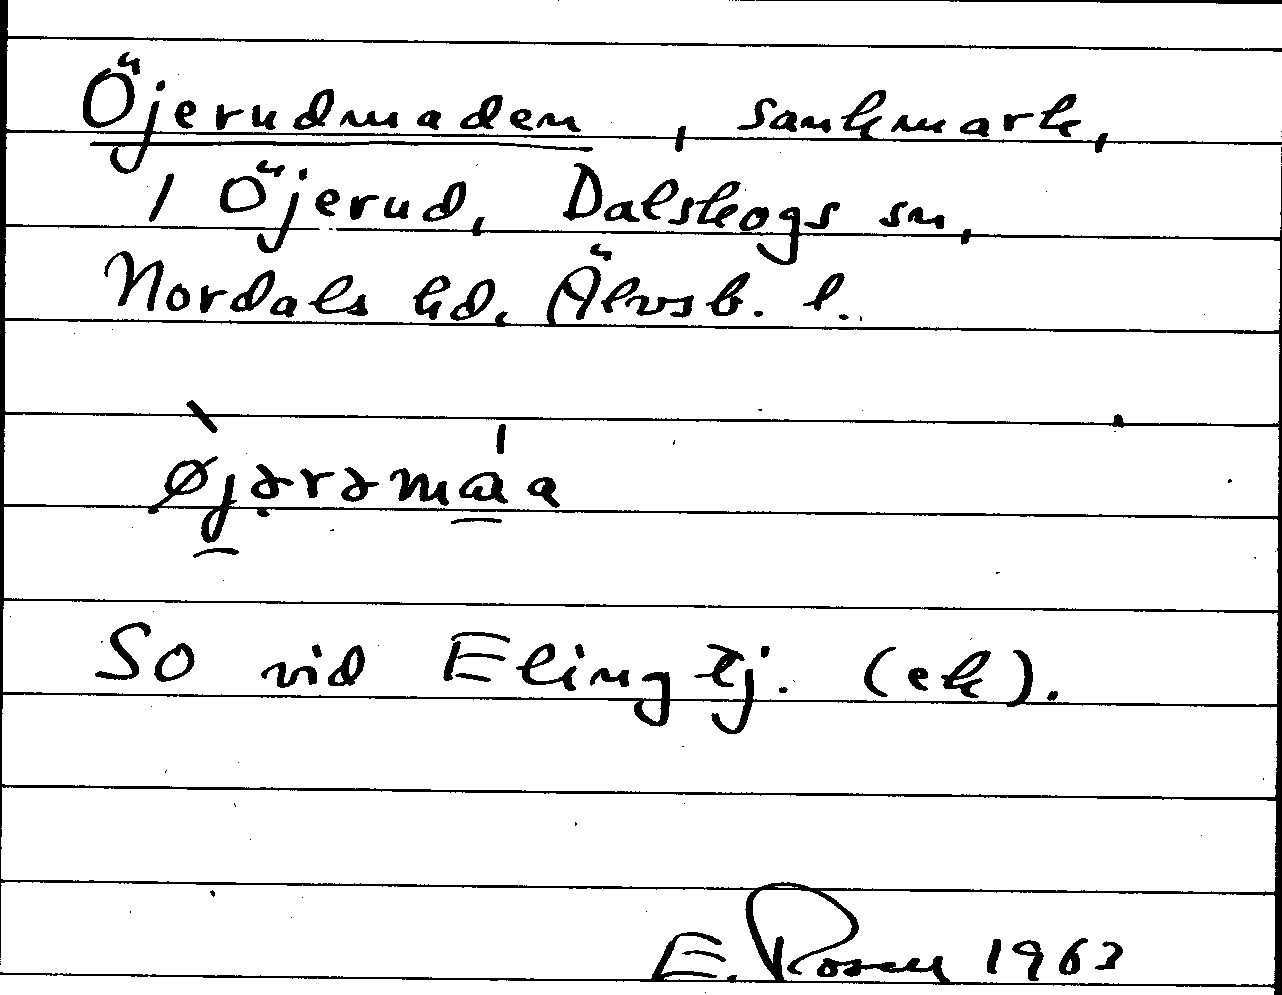 Öjerudmaden, sankmark,
1 Öjerud, Dalskogs sn,
Nordals hd. Älvsb. l.
øjərəmàa
SO vid Elingtj. (ek).
E. Rosen 1963